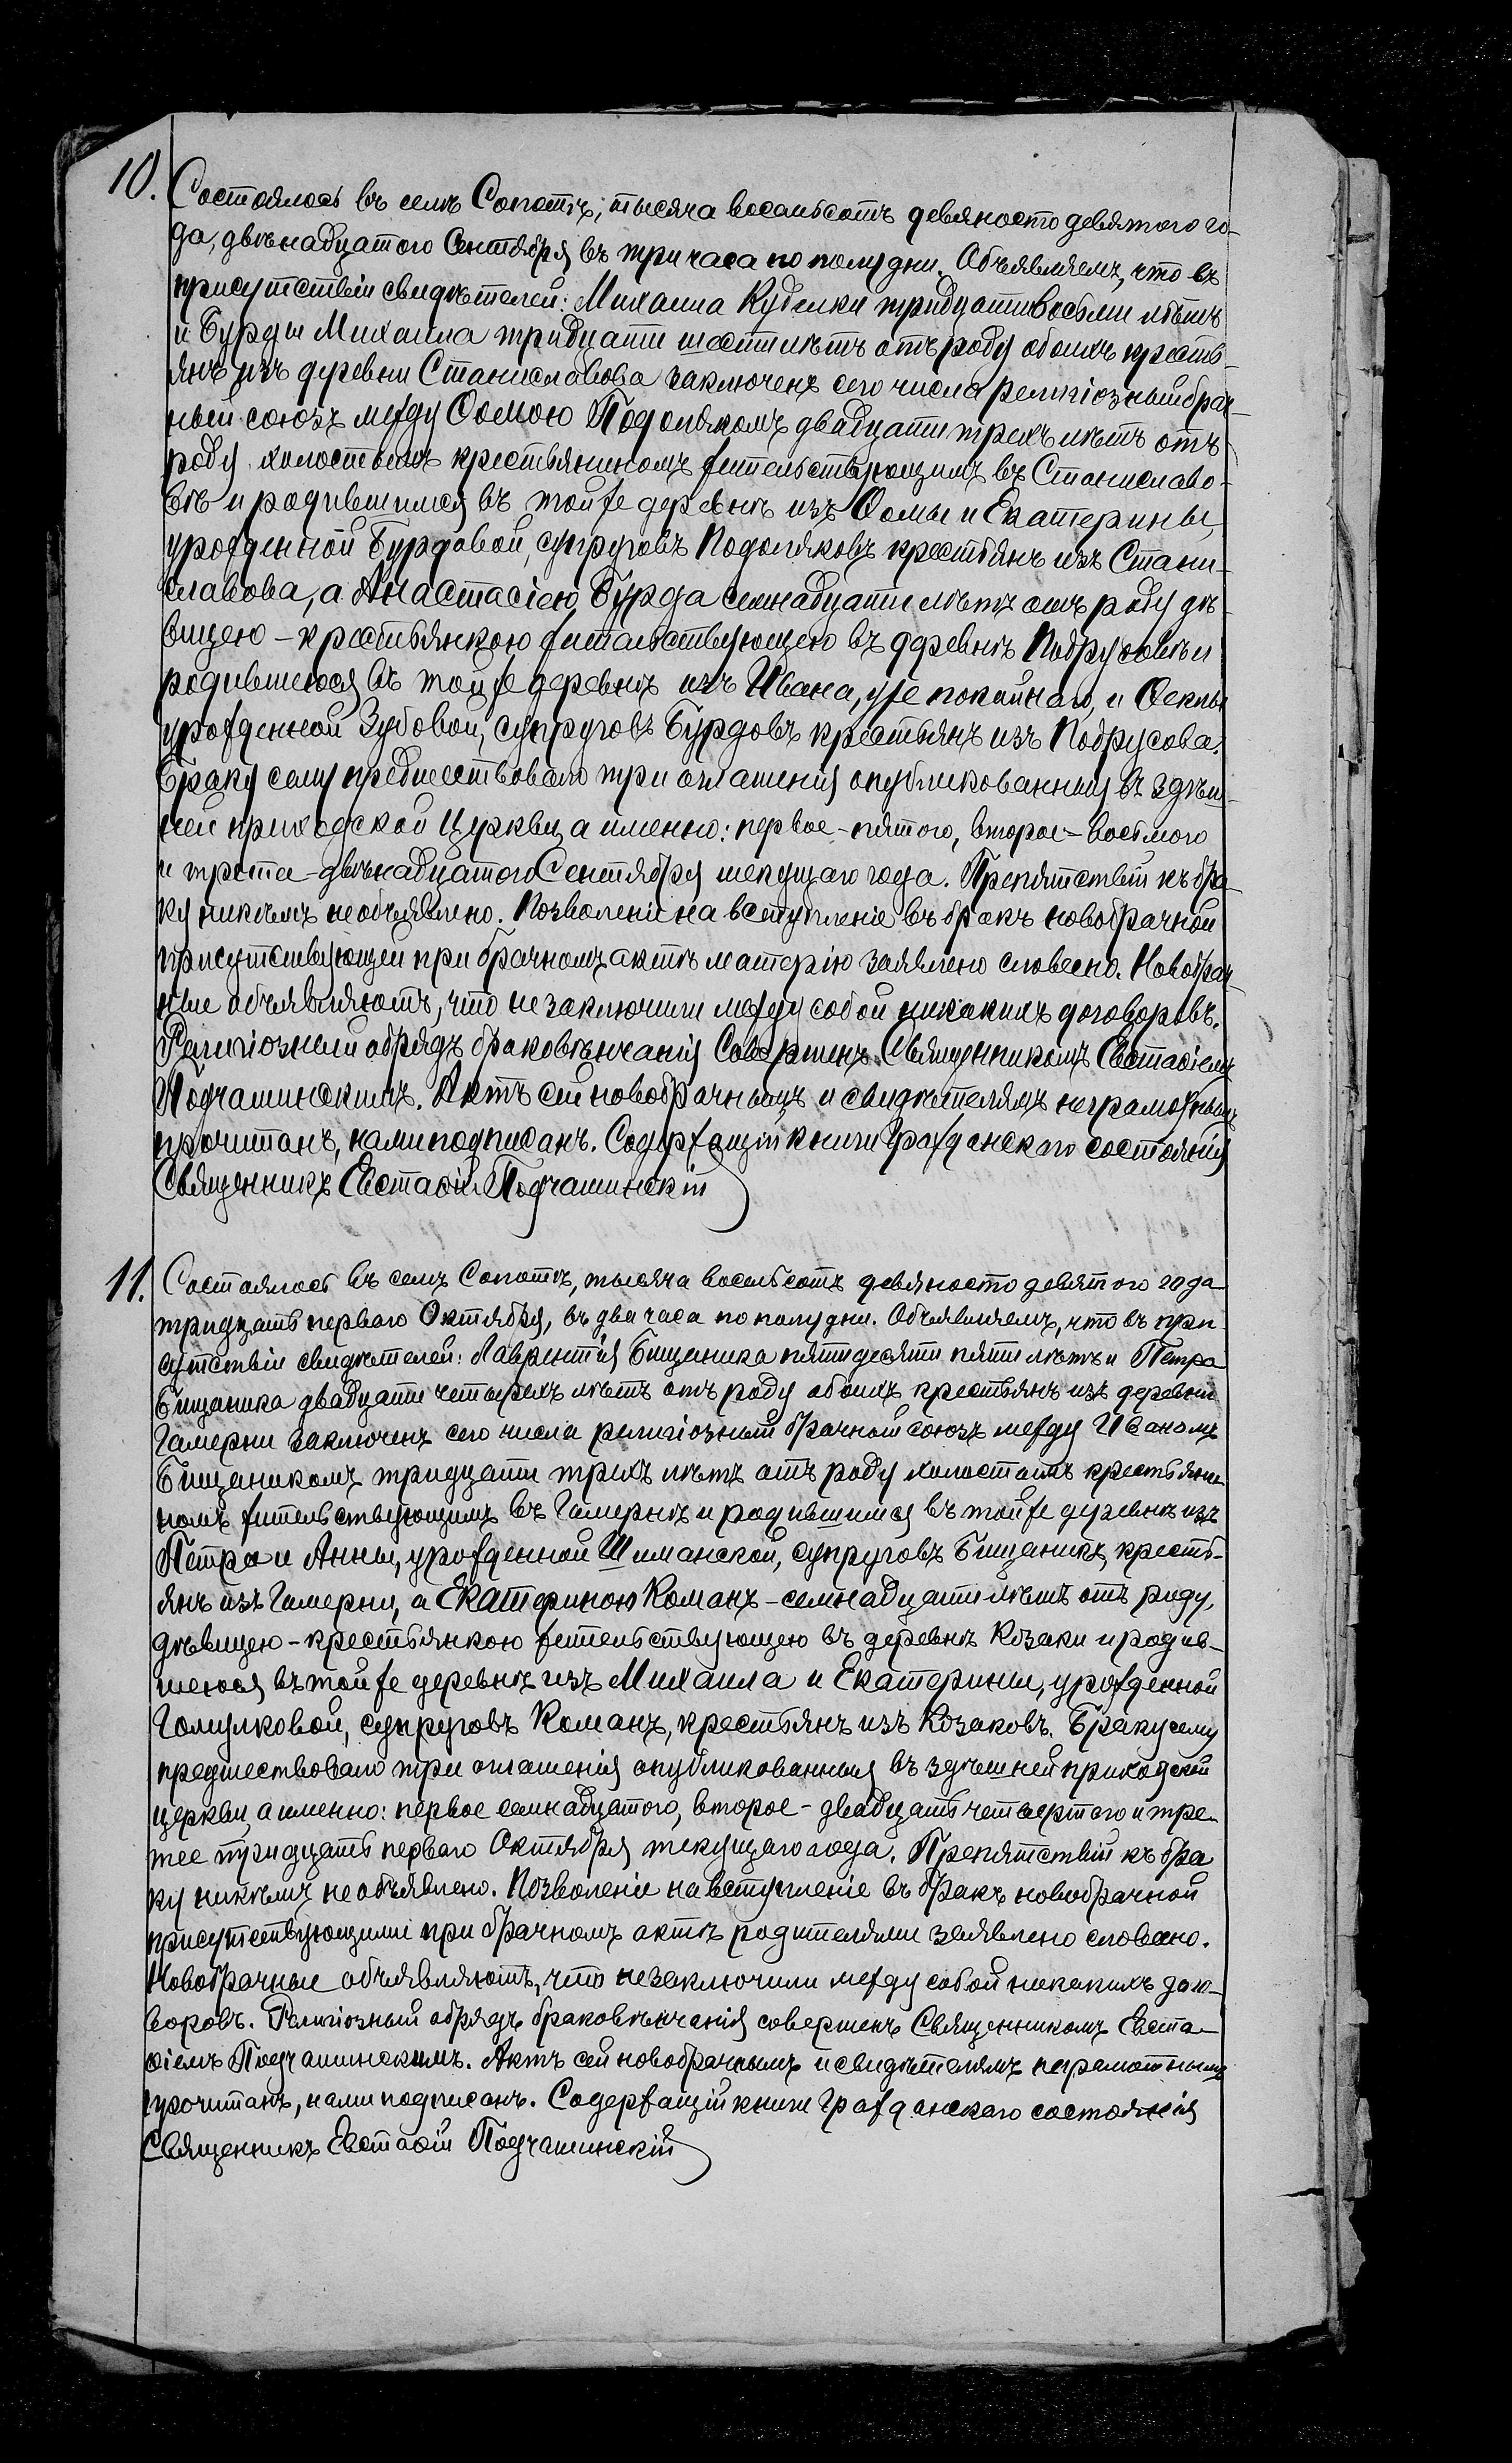 10. Состоялось въ селѣ Сопотѣ, тысяча восемьсотъ девяносто девятого го-
да, двѣнадцатого Сентября въ три часа по полудни. Объявляемъ, что въ
присутствіи свидѣтелей: Михаила Куделки тридцати восьми лѣтъ
и Бурды Михаила тридцати шести лѣтъ отъ роду обоихъ кресть-
янъ изъ деревни Станиславова заключенъ сего числа религіозный брач-
ный союзъ между Ѳомою Подолякомъ двадцати трехъ лѣтъ отъ
роду холостымъ крестьяниномъ жительствующимъ въ Станиславо-
вѣ и родившимся въ той же деревнѣ изъ Ѳомы и Екатерины,
урожденной Бурдовой, супруговъ Подоляковъ крестьянъ изъ Стани-
славова, а Анастасіею Бурда семнадцати лѣтъ отъ роду дѣ-
вицею - крестьянкою жительствующею въ деревнѣ Подрусовѣ и
родившеюся въ той же деревнѣ изъ Ивана, уже покойнаго, и Ѳеклы
урожденной Зубовой, супруговъ Бурдовъ крестьянъ изъ Подрусова.
Браку сему предшествовало три оглашенія опубликованныя въ здѣш-
ней приходской Церкви, а именно: первое - пятого, второе - восьмого
и третье - двѣнадцатого Сентября текущаго года. Препятствій къ бра-
ку никѣмъ не объявлено. Позволеніе на вступленіе въ бракъ новобрачной
присутствующей при брачномъ актѣ матерію заявлено словесно. Новобрач-
ные объявляютъ, что не заключили между собой никакихъ договоровъ.
Религіозный обрядъ браковѣнчанія Совершенъ Священникомъ Евстафіемъ
Подчашинскимъ. Актъ сей новобрачнымъ и свидѣтелямъ неграмотнымъ
прочитанъ, нами подписанъ. Содержащій книги Гражданскаго состоянія
Священникъ Евстафій Подчашинскій
11. Состоялось въ селѣ Сопотѣ, тысяча восемьсотъ девяносто девятого года
тридцать перваго Октября, въ два часа по полудни. Объявляемъ, что въ при-
сутствіи свидѣтелей: Лаврентія Бищаника пятидесяти пяти лѣтъ и Петра
Бищаника двадцати четырехъ лѣтъ отъ роду обоихъ крестьянъ изъ деревни
Гамерни заключенъ сего числа религіозный брачный союзъ между Иваномъ
Бищаникомъ тридцати трехъ лѣтъ отъ роду холостымъ крестьяни-
номъ жительствующимъ въ Гамернѣ и родившимся въ той же деревнѣ изъ
Петра и Анны, урожденной Шиманской, супруговъ Бищаникъ, кресть-
янъ изъ Гамерни, а Екатериною Команъ - семнадцати лѣтъ отъ роду,
дѣвицею - крестьянкою жительствующею въ деревнѣ Козаки и родив-
шеюся въ той же деревнѣ изъ Михаила и Екатерины, урожденной
Гомулковой, супруговъ Команъ, крестьянъ изъ Козаковъ. Браку сему
предшествовало три оглашенія опубликованныя въ здѣшней приходской
церкви, а именно: первое семнадцатого, второе - двадцать четвертого и тре-
тее тридцать перваго Октября текущаго года. Препятствій къ бра
ку никѣмъ не объявлено. Позволеніе на вступленіе въ бракъ новобрачной
присутствующими при брачномъ актѣ родителями заявлено словесно.
Новобрачные объявляютъ, что не заключили между собой никакихъ дого-
воровъ. Религіозный обрядъ браковѣнчанія совершенъ Священникомъ Евста-
фіемъ Подчашинскимъ. Актъ сей новобрачнымъ и свидѣтелямъ неграмотнымъ
прочитанъ, нами подписанъ. Содержащій книги Гражданскаго состоянія
Священникъ Евстафій Подчашинскій